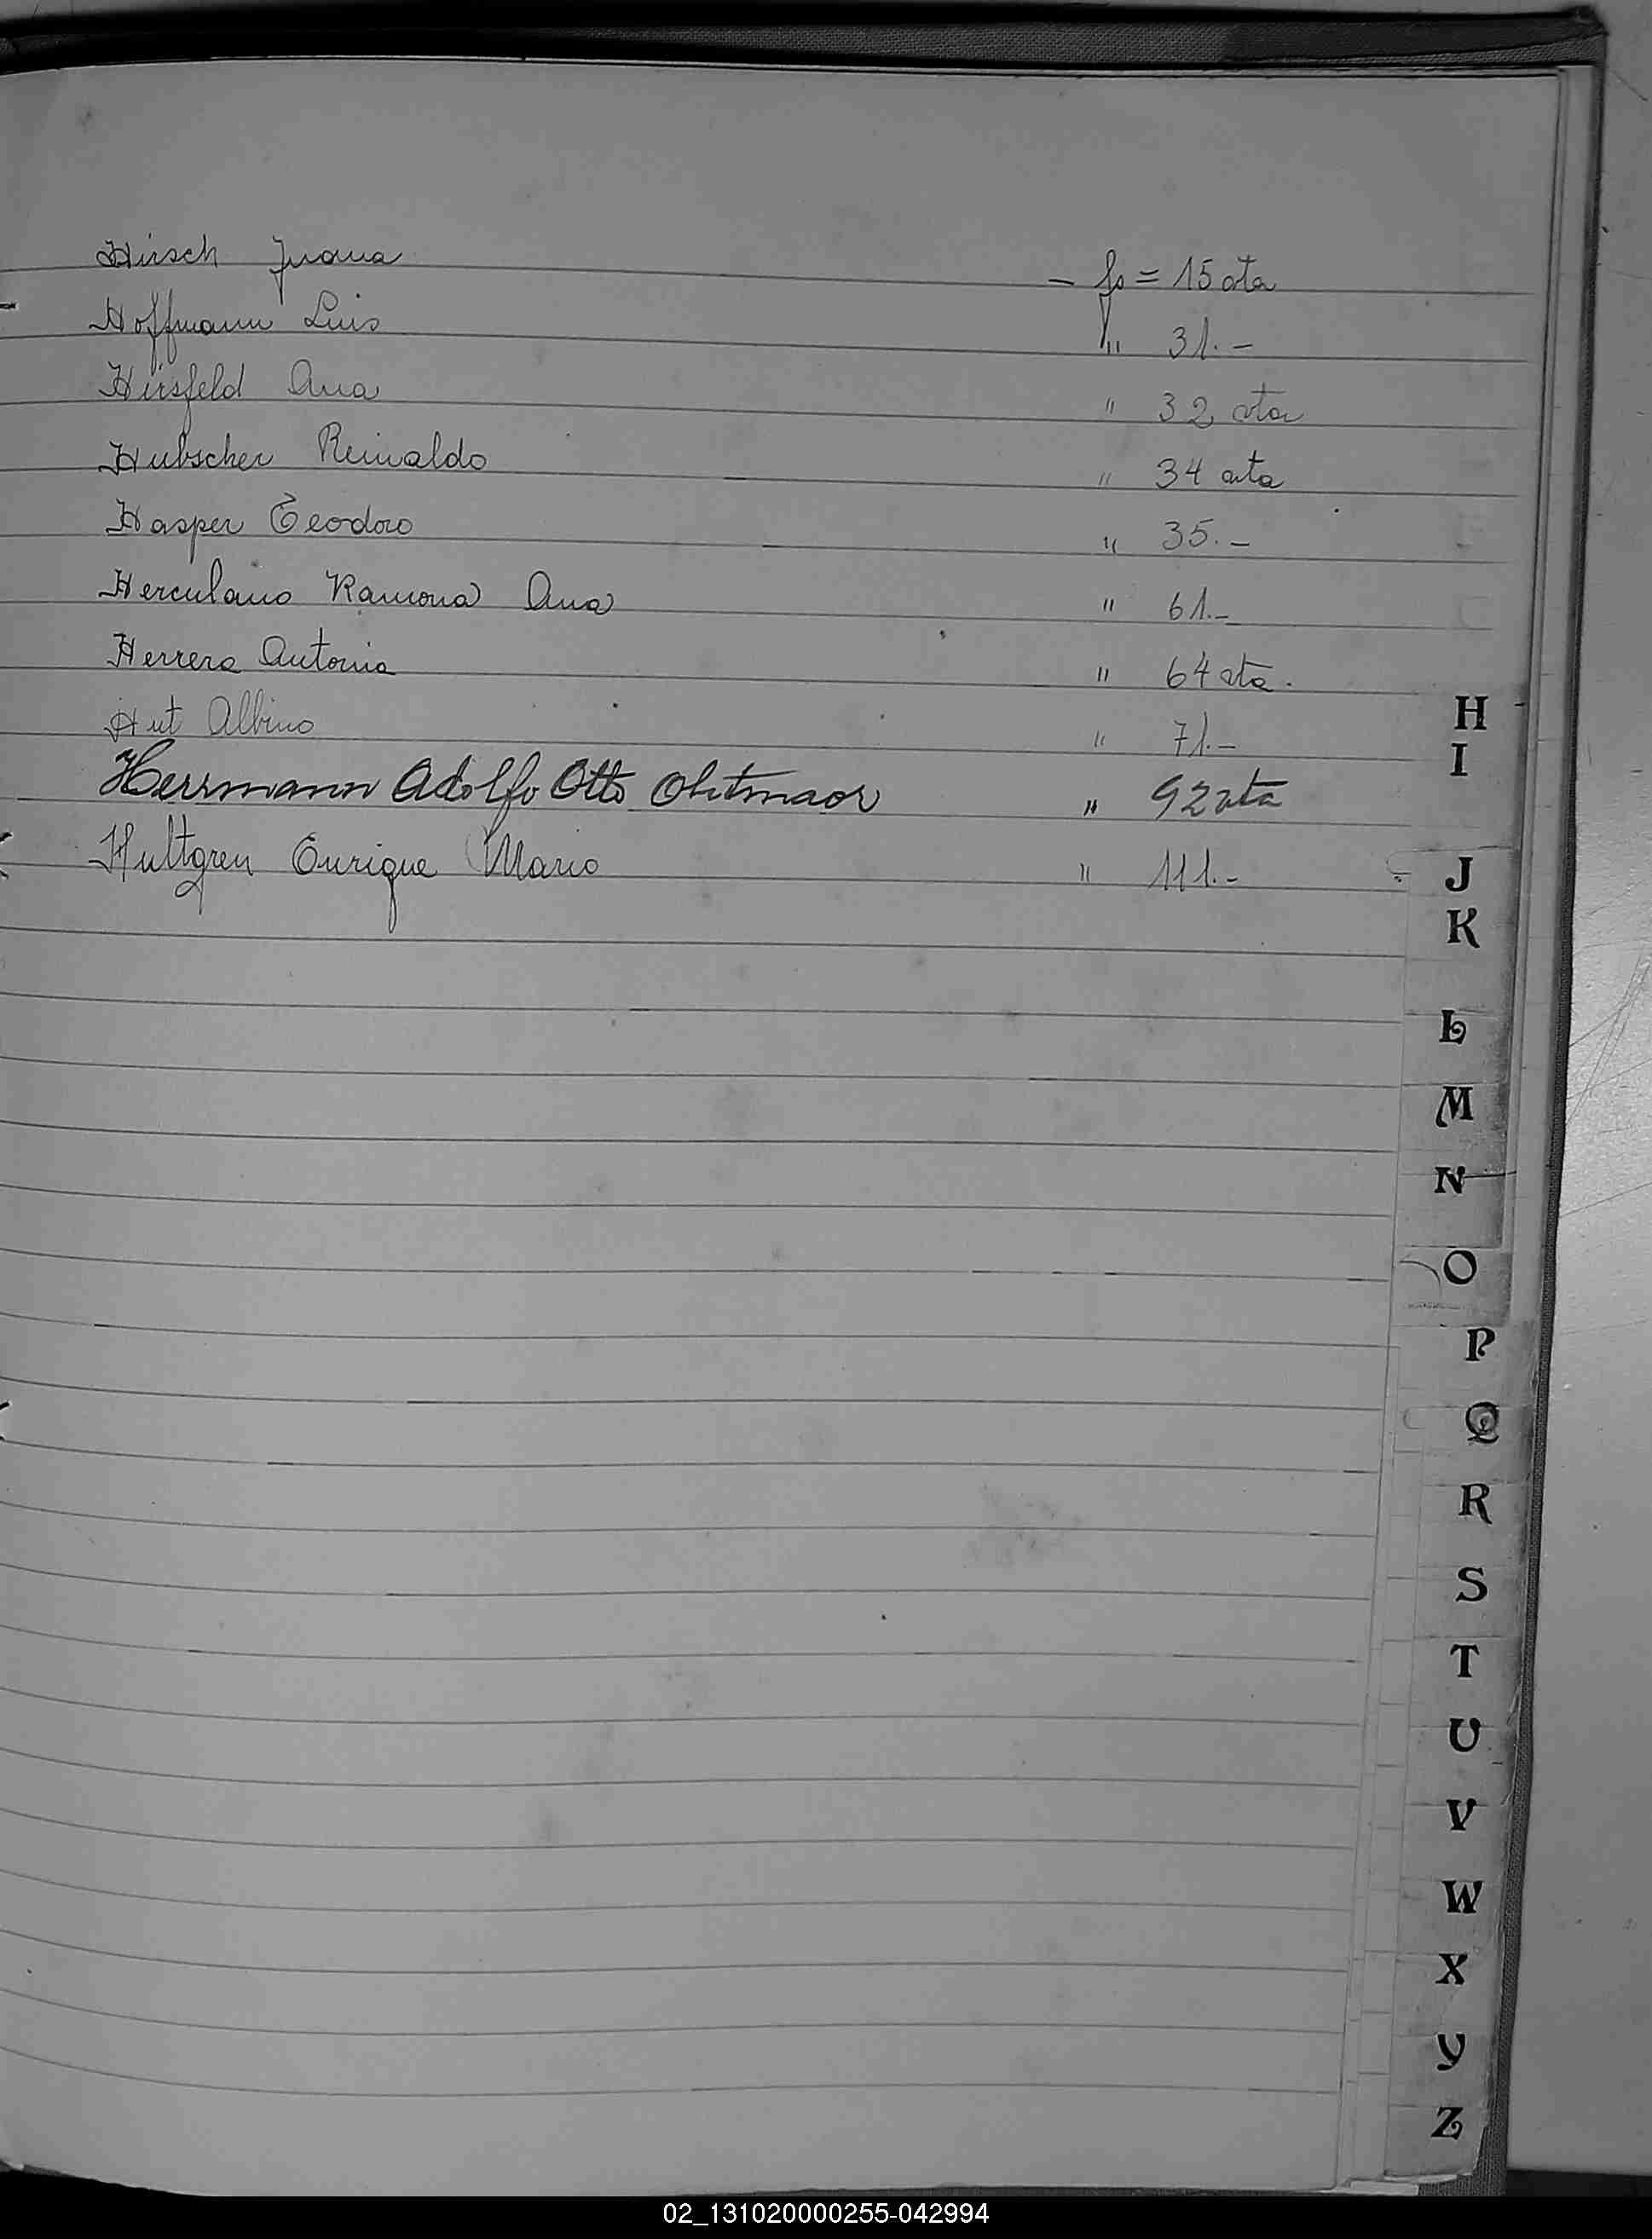 Hirsch Juana — fo = 15 vta
Hoffmann Luis " 31.-
Hirsfeld Ana " 32 vta
Hubscher Reinaldo " 34 vta
Hasper Teodoro " 35.-
Herculano Ramona Ana " 61.-
Herrera Antonia " 64 vta.
Hut Albino " 71.-
Herrmann Adolfo Otto " 92 vta
Hultgren Enrique Mario " 111.-
H
I
J
K
L
M
N
O
P
Q
R
S
T
U
V
W
X
Y
Z
02_131020000255-042994